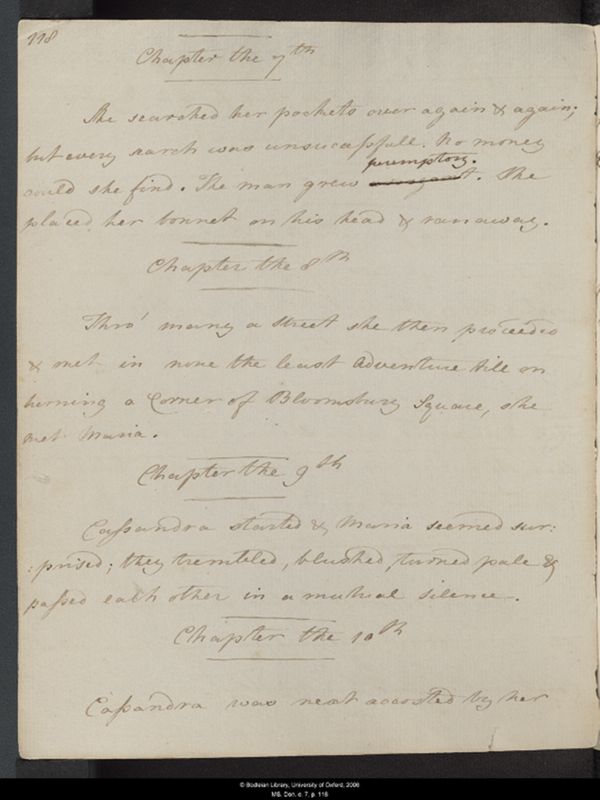 118
Chapter the 7th
She searched her pockets over again & again;
but every search was unsuccessfull. No money
peremptory.
could she find. The man grew arrogant. She
placed her bonnet on his head & ran away.
Chapter the 8th
Thro' many a street she then proceeded
& met in none the least Adventure till on
turning a Corner of Bloomsbury Square, she
met Maria.
Chapter the 9th
Cassandra started & Maria seemed sur:
:prised; they trembled, blushed, turned pale &
passed each other in a mutual silence.
Chapter the 10th
Cassandra was next accosted by her
© Bodleian Library, University of Oxford, 2006
MS. Don. e. 7, p. 118